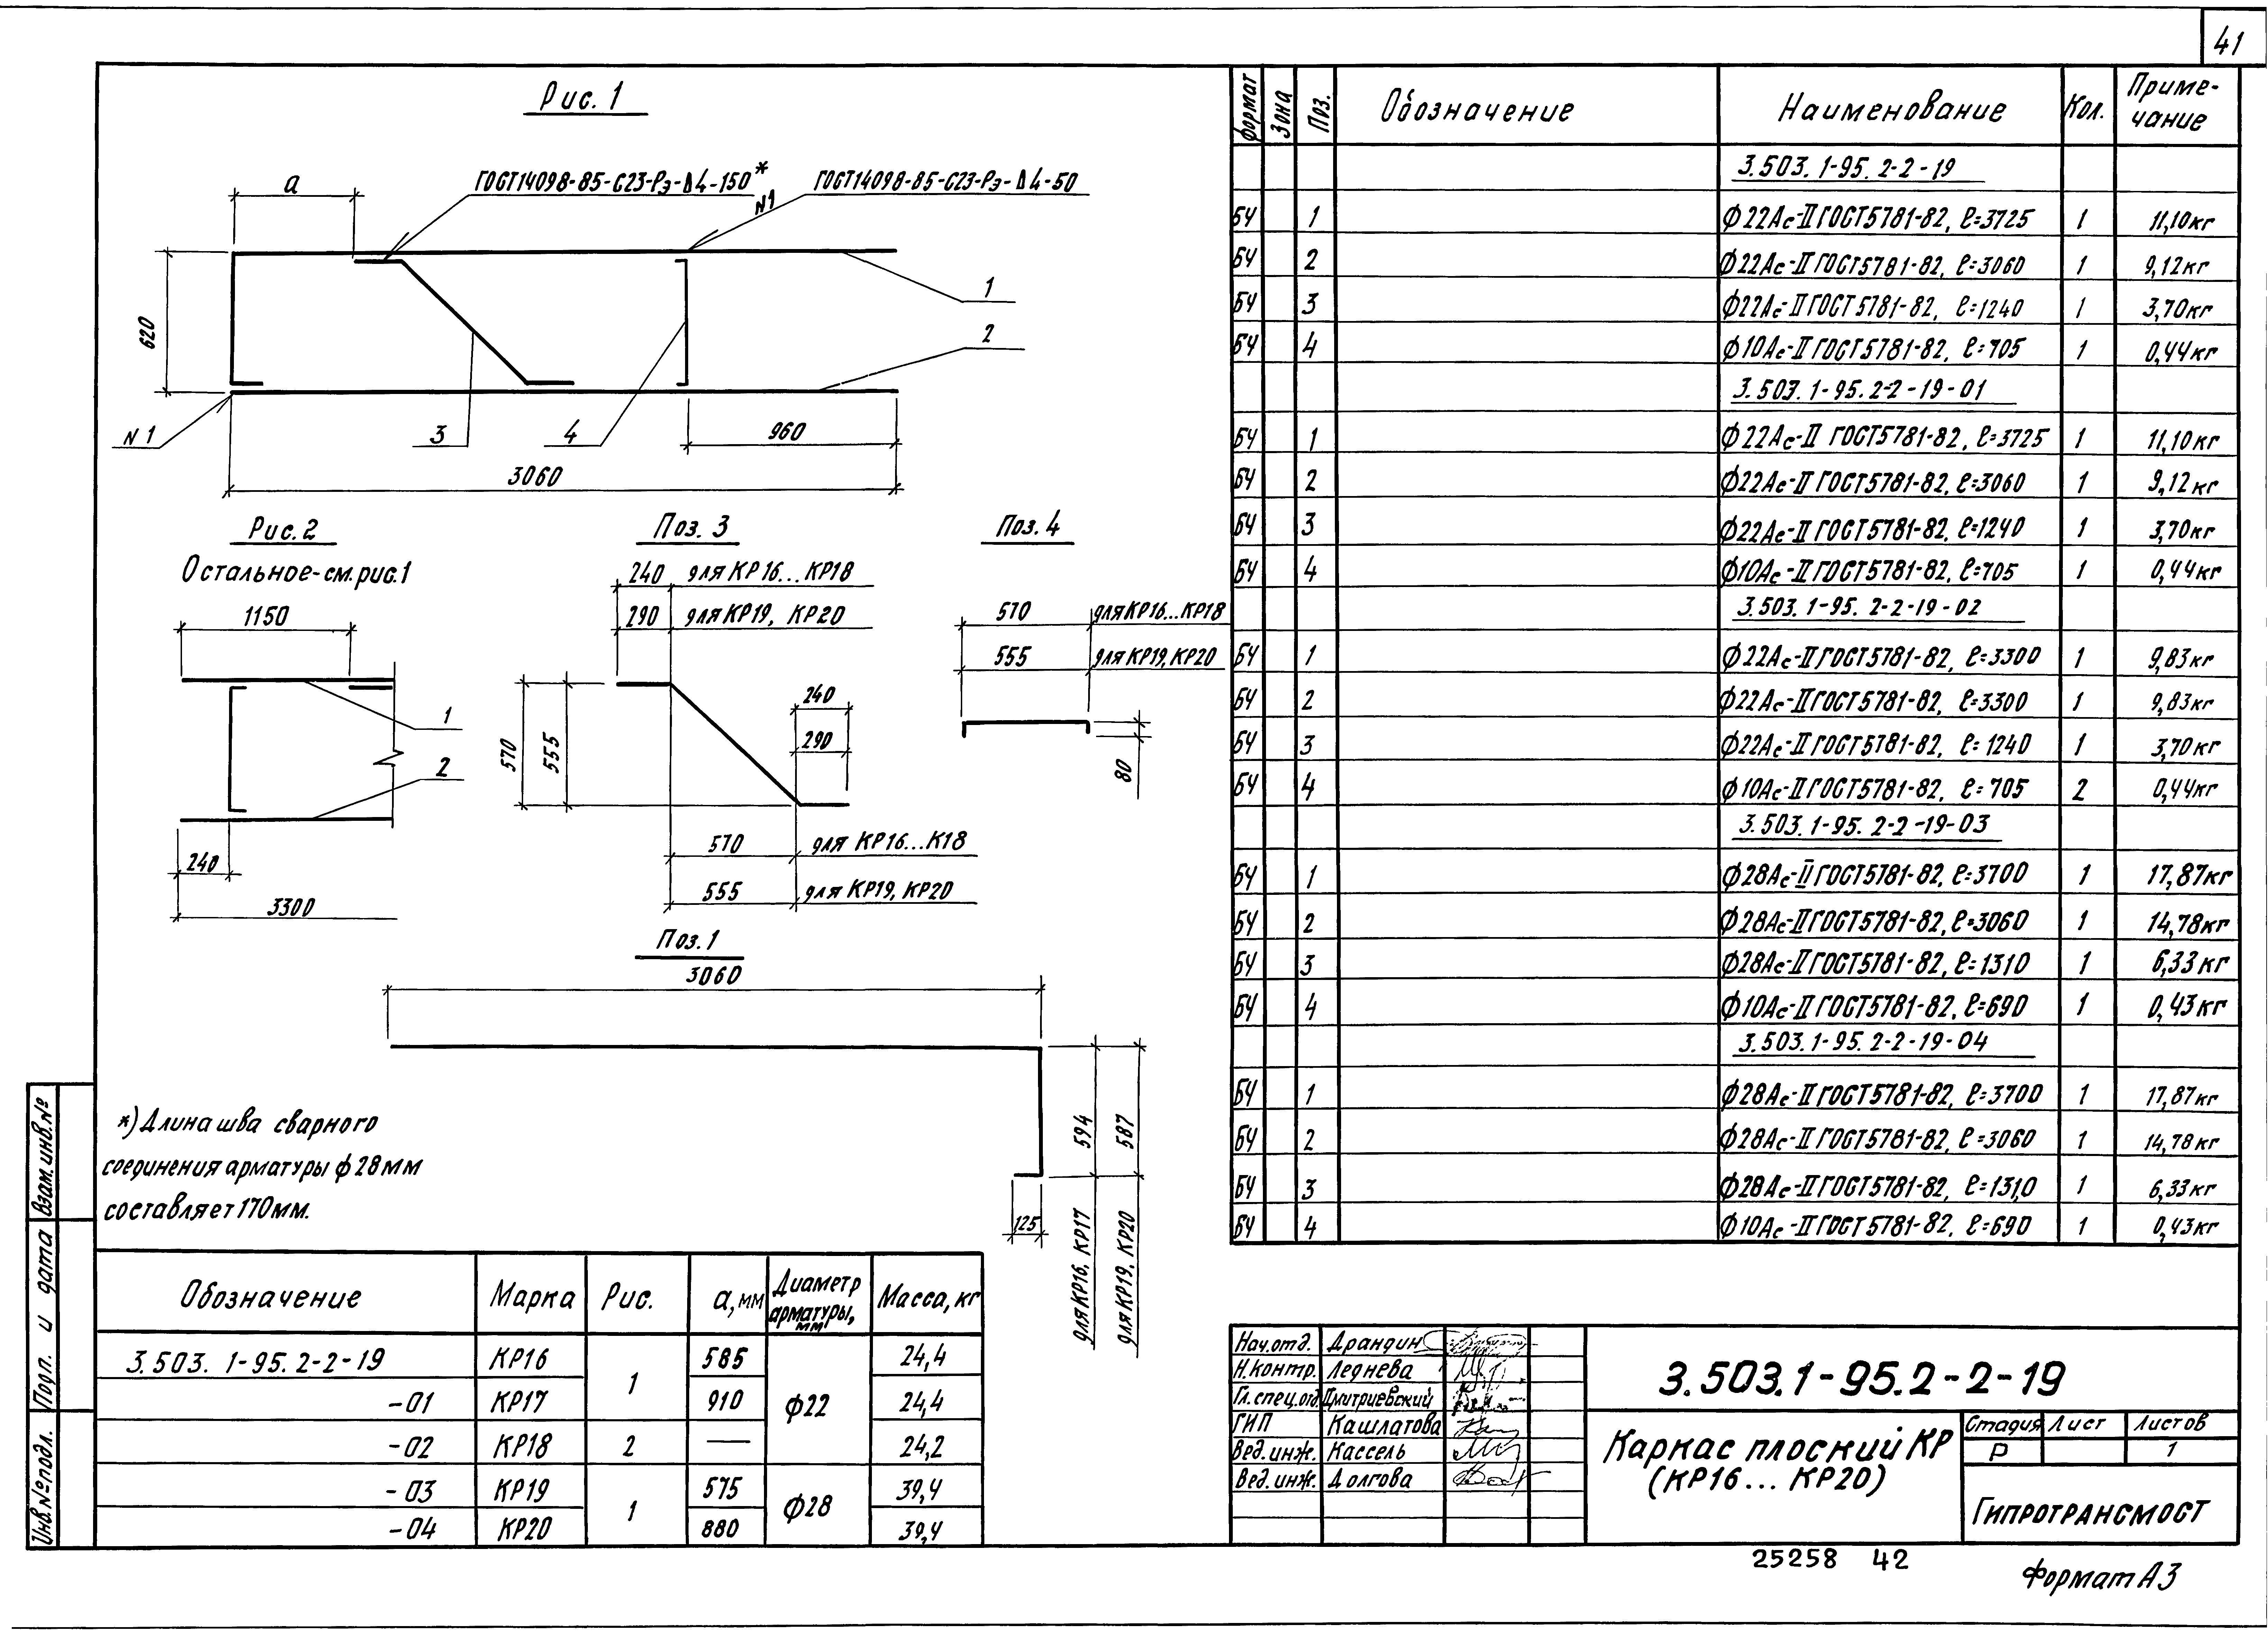 41
Рис. 1
a
ГОСТ14098-85-С23-Рэ-Δ4-150*
№1
ГОСТ14098-85-С23-Рэ-Δ4-50
620
1
2
№1
3
4
960
3060
Рис. 2
Остальное-см.рис.1
1150
1
2
240
3300
Поз. 3
240 для КР16...КР18
290 для КР19, КР20
570
555
240
290
570 для КР16...К18
555 для КР19, КР20
Поз. 4
570 для КР16...КР18
555 для КР19, КР20
80
Поз. 1
3060
594
587
125
для КР16, КР17
для КР19, КР20
*) Длина шва сварного
соединения арматуры ф 28мм
составляет 170мм.
Обозначение Марка Рис. а, мм Диаметр арматуры, мм Масса, кг
3.503.1-95.2-2-19 КР16 1 585 ф22 24,4
-01 КР17 910 24,4
-02 КР18 2 — 24,2
-03 КР19 1 575 ф28 39,4
-04 КР20 880 39,4
Взам. инв. №
Подп. и дата
Инв. № подл.
формат Зона Поз. Обозначение Наименование Кол. Приме-
чание
3.503.1-95.2-2-19
БЧ 1 ф22Ас-II ГОСТ5781-82, ℓ=3725 1 11,10кг
БЧ 2 ф22Ас-II ГОСТ5781-82, ℓ=3060 1 9,12кг
БЧ 3 ф22Ас-II ГОСТ5781-82, ℓ=1240 1 3,70кг
БЧ 4 ф10Ас-II ГОСТ5781-82, ℓ=705 1 0,44кг
3.503.1-95.2-2-19-01
БЧ 1 ф22Ас-II ГОСТ5781-82, ℓ=3725 1 11,10кг
БЧ 2 ф22Ас-II ГОСТ5781-82, ℓ=3060 1 9,12кг
БЧ 3 ф22Ас-II ГОСТ5781-82, ℓ=1240 1 3,70кг
БЧ 4 ф10Ас-II ГОСТ5781-82, ℓ=705 1 0,44кг
3.503.1-95.2-2-19-02
БЧ 1 ф22Ас-II ГОСТ5781-82, ℓ=3300 1 9,83кг
БЧ 2 ф22Ас-II ГОСТ5781-82, ℓ=3300 1 9,83кг
БЧ 3 ф22Ас-II ГОСТ5781-82, ℓ=1240 1 3,70кг
БЧ 4 ф10Ас-II ГОСТ5781-82, ℓ=705 2 0,44кг
3.503.1-95.2-2-19-03
БЧ 1 ф28Ас-II ГОСТ5781-82, ℓ=3700 1 17,87кг
БЧ 2 ф28Ас-II ГОСТ5781-82, ℓ=3060 1 14,78кг
БЧ 3 ф28Ас-II ГОСТ5781-82, ℓ=1310 1 6,33кг
БЧ 4 ф10Ас-II ГОСТ5781-82, ℓ=690 1 0,43кг
3.503.1-95.2-2-19-04
БЧ 1 ф28Ас-II ГОСТ5781-82, ℓ=3700 1 17,87кг
БЧ 2 ф28Ас-II ГОСТ5781-82, ℓ=3060 1 14,78кг
БЧ 3 ф28Ас-II ГОСТ5781-82, ℓ=1310 1 6,33кг
БЧ 4 ф10Ас-II ГОСТ5781-82, ℓ=690 1 0,43кг
Нач.отд. Драндин
Н.контр. Леднева
Гл.спец.отд. Дмитриевский
ГИП Кашлатова
Вед.инж. Кассель
Вед.инж. Долгова
3.503.1-95.2-2-19
Каркас плоский КР
(КР16... КР20)
Стадия Лист Листов
Р 1
Гипротрансмост
25258 42
Формат А3